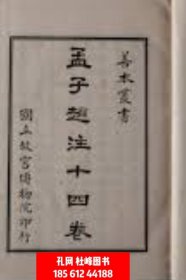 善本叢書
孟子趙注十四卷
國立故宮博物院印行
孔网 杜峰图书
185 612 44188